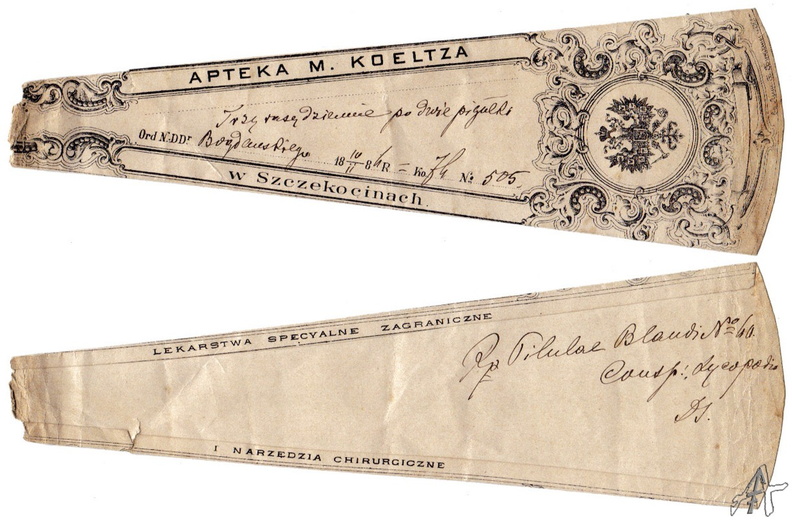 APTEKA M. KOELTZA
Trzy razy dziennie po dwie pigułki
Ord N. DDr Bogdanskiego 18 10/11 86 R = Ko 74 No 505
w Szczekocinach.
LEKARSTWA SPECYALNE ZAGRANICZNE
Rp Pilulae Blaudi No 60.
Consp: Lycopodio
DS.
I NARZĘDZIA CHIRURGICZNE